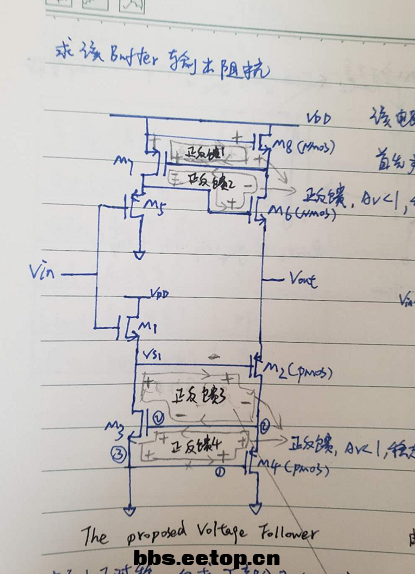 求该Buffer输出阻抗
VDD
该电
M7
正反馈1
M8(NMOS)
首先
正反馈2
正反馈, Av<1,
M5
M6(NMOS)
Vin
Vout
Vin
VDD
M1
VS1
M2(PMOS)
正反馈3
M3
②
②
正反馈4
正反馈, Av<1, 稳
③
①
M4(PMOS)
The proposed Voltage Follower
bbs.eetop.cn